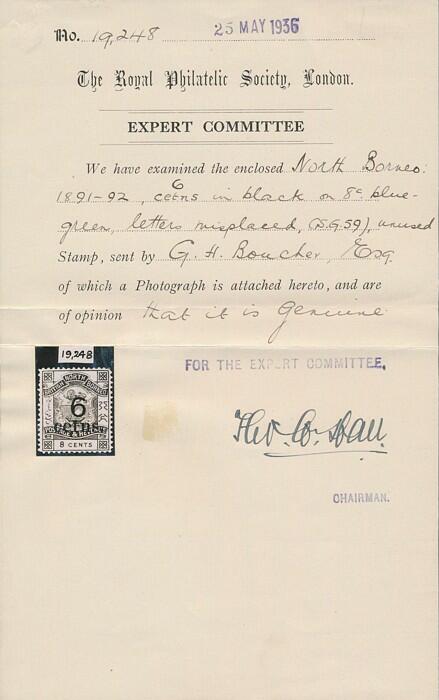 No. 19,248 25 MAY 1936
The Royal Philatelic Society, London.
EXPERT COMMITTEE
We have examined the enclosed North Borneo:
1891-92, 6 cetns in black on 8c blue-
green, letters misplaced, (S.G.59), unused
Stamp, sent by G. H. Boucher, Esq
of which a Photograph is attached hereto, and are
of opinion that it is Genuine
19,248
BRITISH NORTH BORNEO
6
cetns
POSTAGE & REVENUE
8 CENTS
FOR THE EXPERT COMMITTEE,
CHAIRMAN.